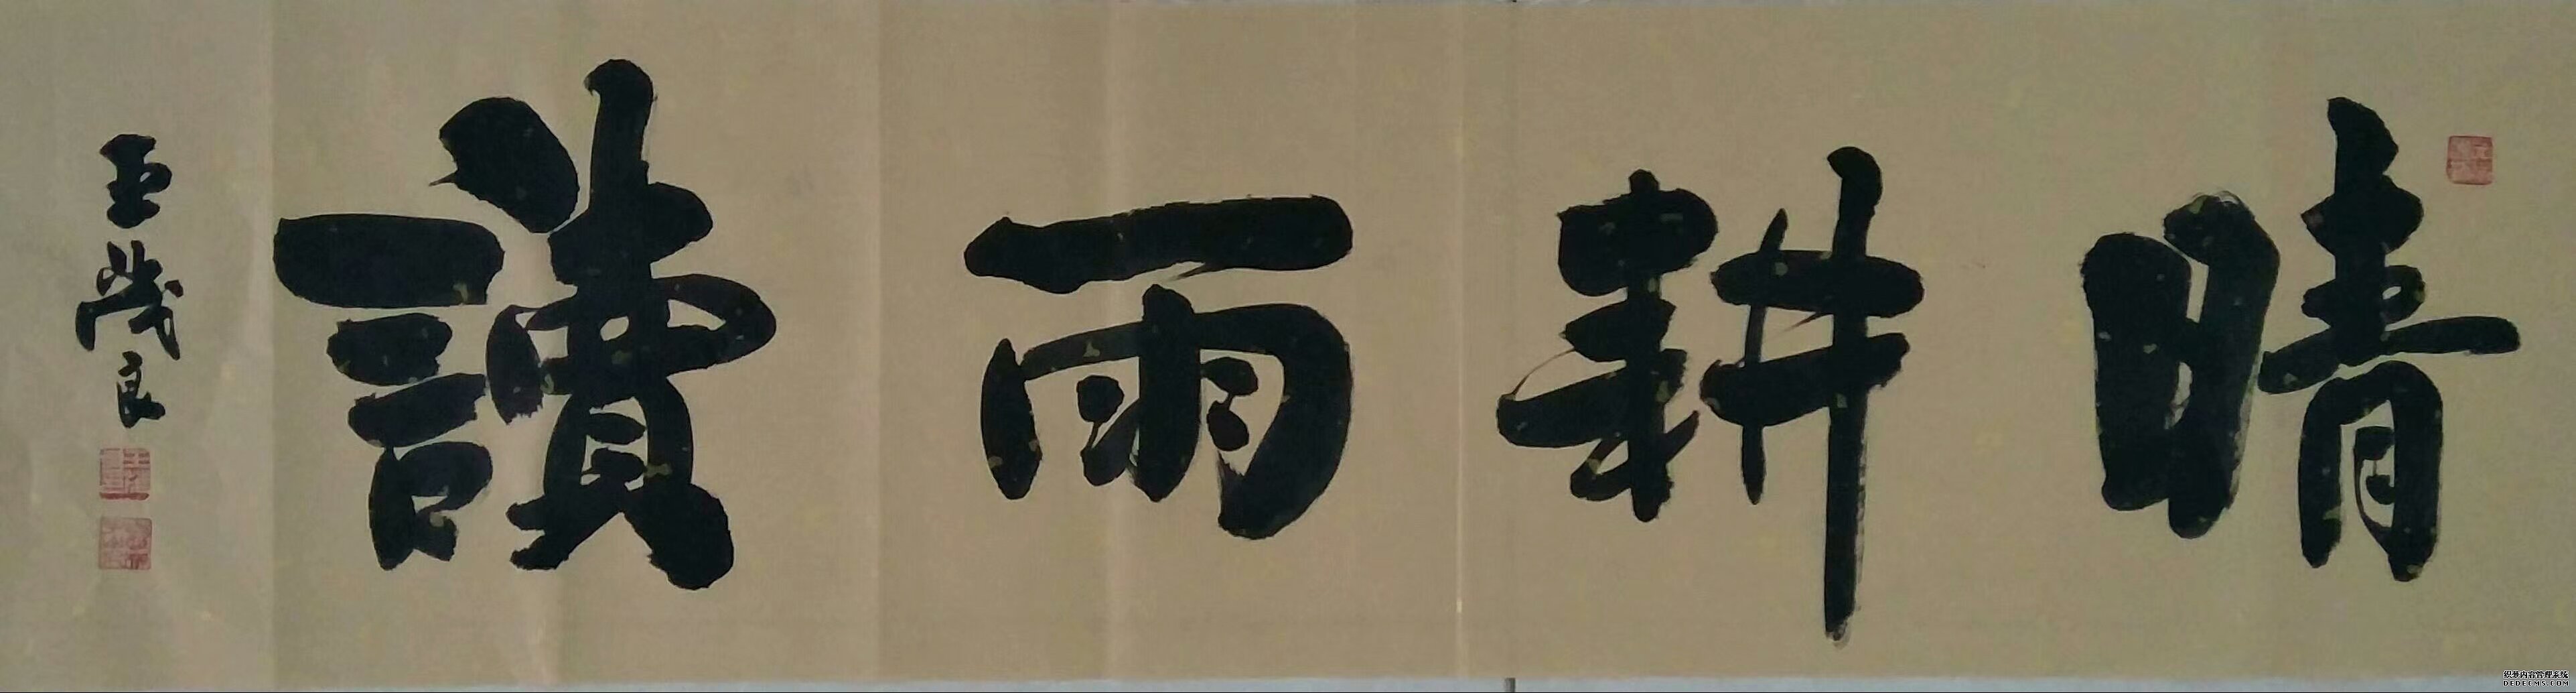 晴耕雨讀
织梦内容管理系统
DEDECMS.COM